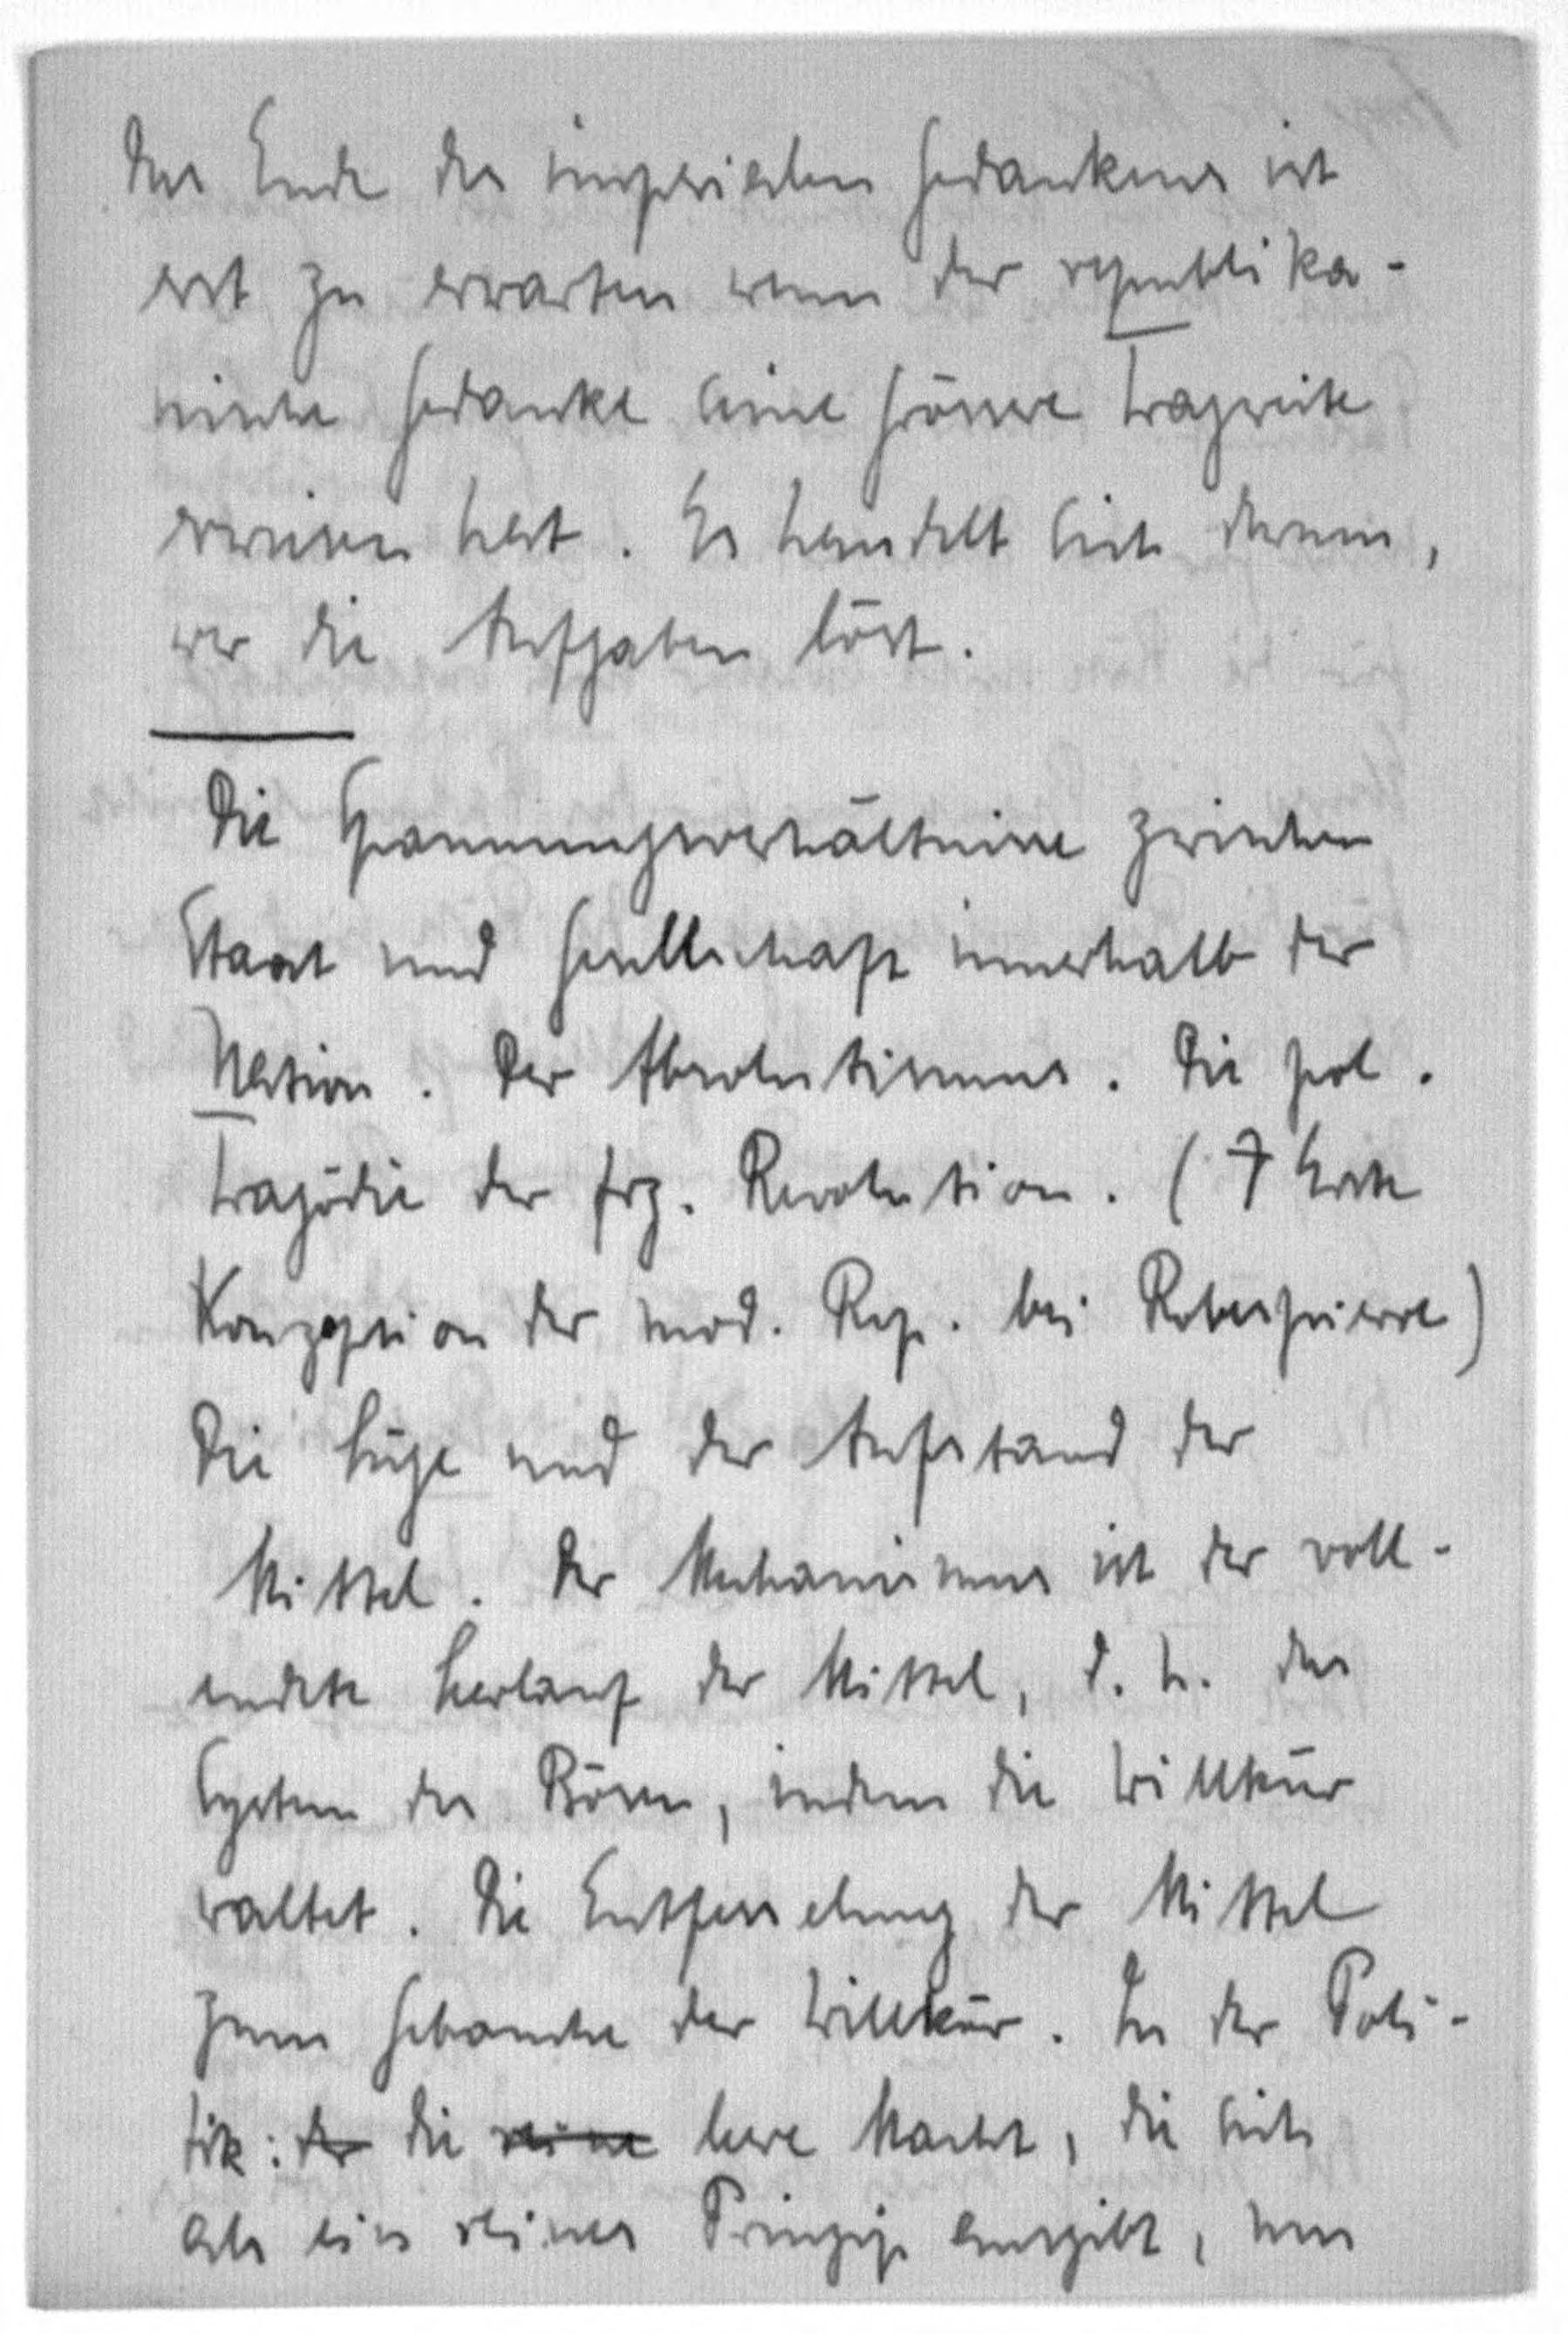 Das Ende des imperialen Gedankens ist
erst zu erwarten wenn der republika-
nische Gedanke seine grössere Tragweite
erwiesen hat. Es handelt sich darum,
wer die Aufgaben löst.
Die Spannungsverhältnisse zwischen
Staat und Gesellschaft innerhalb der
Nation. Der Absolutismus. Die pol.
Tragödie der frz. Revolution. (Erste
Konzeption der mod. Rep. bei Robespierre)
Die Lüge und der Aufstand der
Mittel. Der Mechanismus ist der voll-
endete Leerlauf der Mittel, d. h. das
System des Bösen, indem die Willkür
waltet. Die Entfesselung der Mittel
zum Gebrauche der Willkür. In der Poli-
tik: der die reine leere Macht, die sich
als ein reines Prinzip ausgibt, um